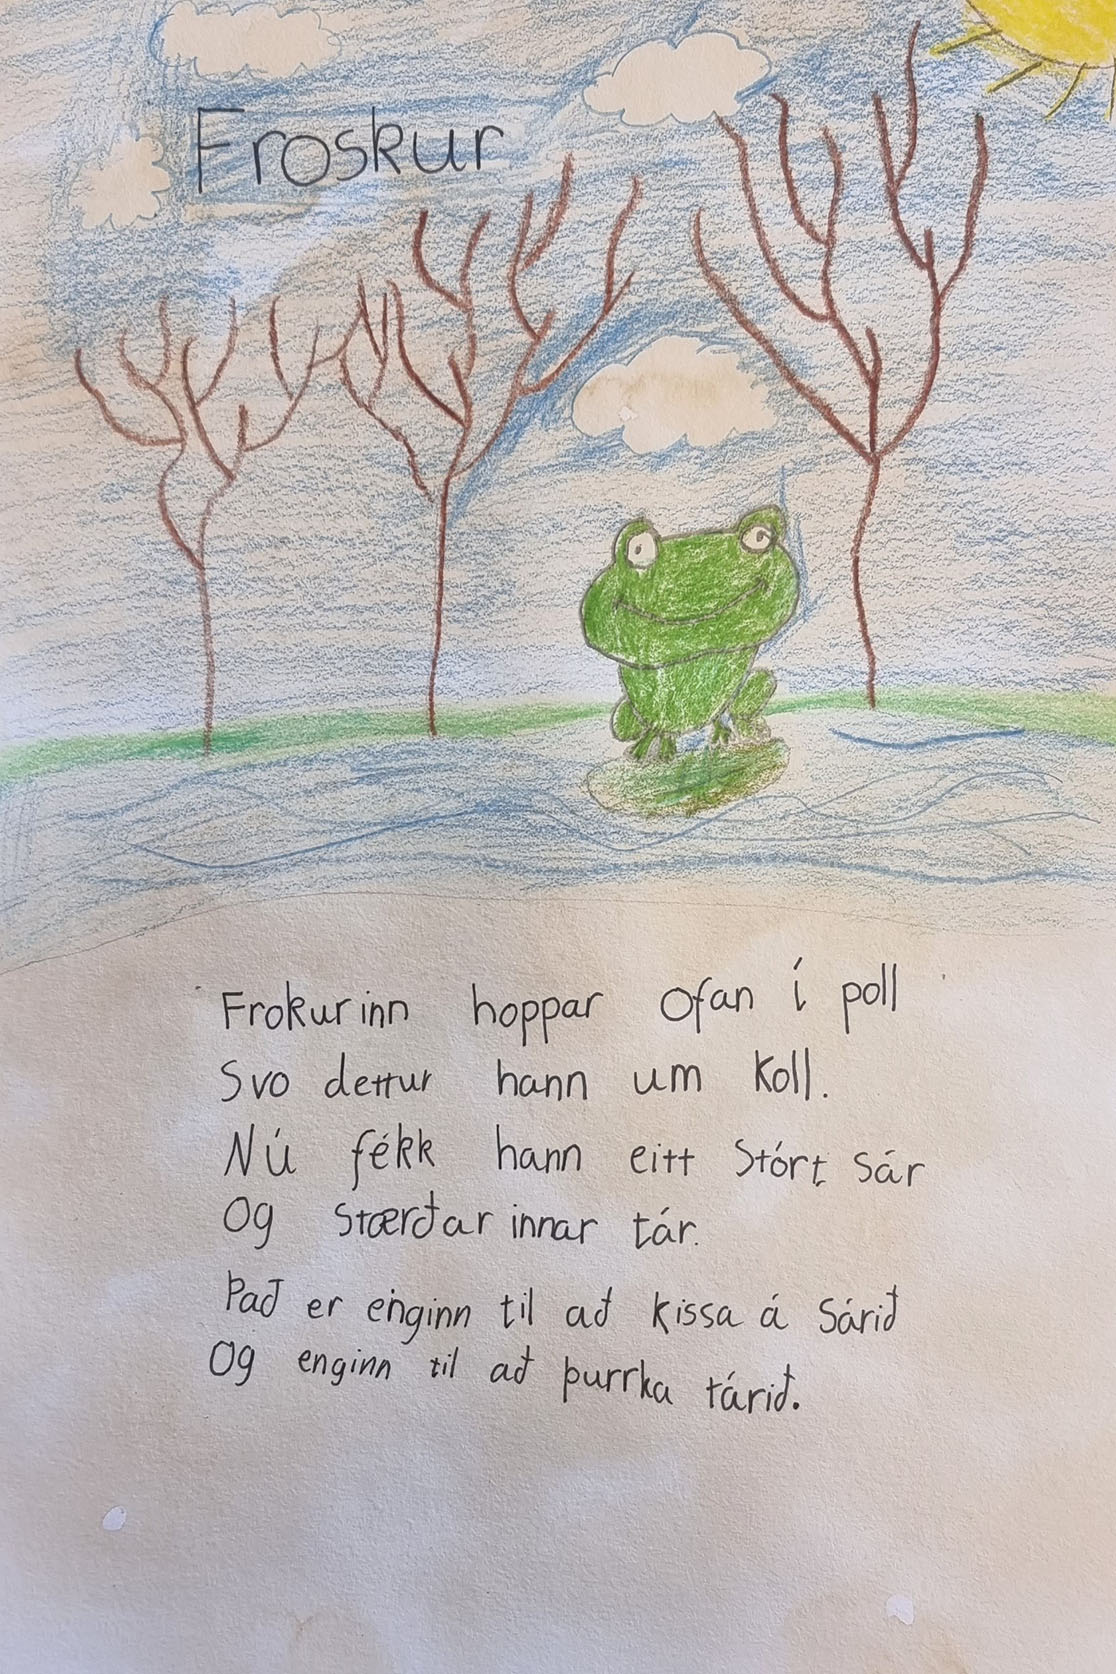 Froskur
Frokurinn hoppar ofan í poll
Svo dettur hann um koll.
Nú fékk hann eitt stórt sár
Og stærðarinnar tár.
Það er enginn til að kissa á sárið
Og enginn til að þurrka tárið.